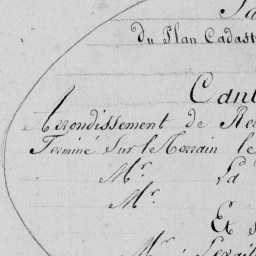 Du Plan Cadast
Cant
Arrondissement de Re
Terminé sur le Terrain le
Mr. La
Mr.
Et
Mr.